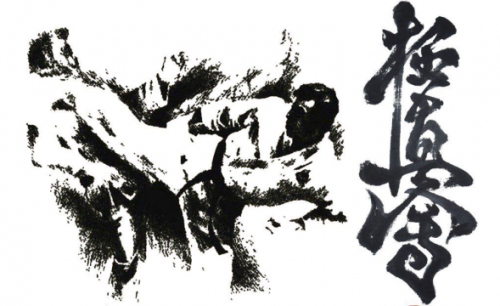 極真会